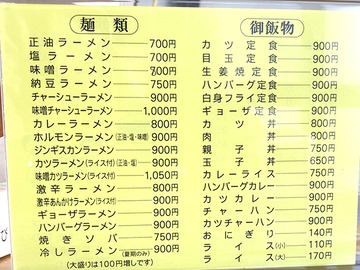 麺類
正油ラーメン 700円
塩ラーメン 700円
味噌ラーメン 800円
納豆ラーメン 750円
チャーシューラーメン 900円
味噌チャーシューラーメン 1,000円
カレーラーメン 800円
ホルモンラーメン(正油・塩・味噌) 900円
ジンギスカンラーメン 900円
カツラーメン(ライス付)(正油・塩) 950円
味噌カツラーメン(ライス付) 1,050円
激辛ラーメン 800円
激辛あんかけラーメン(ライス付) 900円
ギョーザラーメン 900円
ハンバーグラーメン 900円
焼きソバ 750円
冷しラーメン(夏期のみ) 900円
(大盛りは100円増しです)
御飯物
カツ定食 900円
目玉定食 900円
生姜焼定食 900円
ハンバーグ定食 900円
白身フライ定食 900円
ギョーザ定食 900円
カツ丼 800円
肉丼 800円
親子丼 750円
玉子丼 650円
カレーライス 750円
ハンバーグカレー 900円
カツカレー 900円
チャーハン 750円
カツチャーハン 900円
おにぎり 140円
ライス(小) 110円
ライス(大) 170円
び